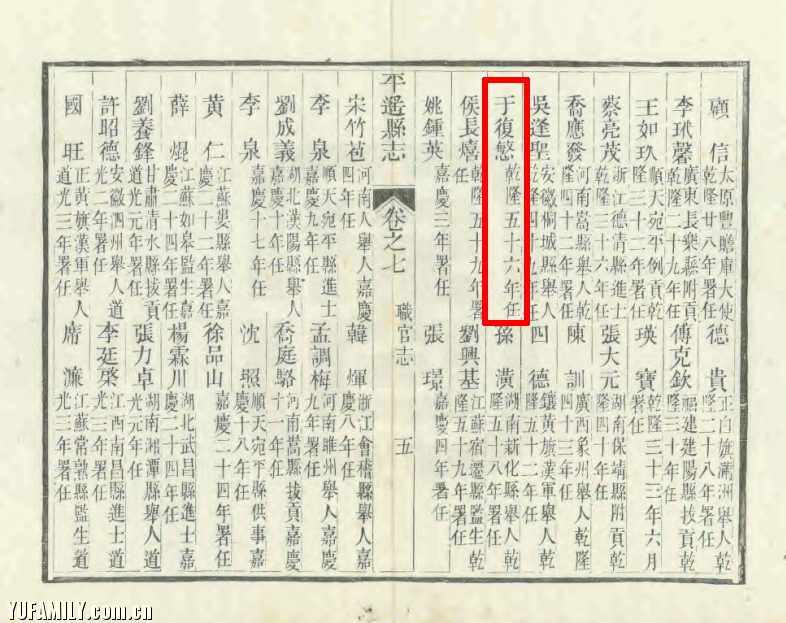 顧信 太原豐贍庫大使乾隆廿八年署任 德貴 正白旗滿洲舉人乾隆二十八年署任
李玳馨 廣東長樂縣附貢乾隆二十九年任 傅克欽 福建建陽縣拔貢乾隆三十年任
王如玖 順天宛平例貢乾隆三十二年署任 瑛寶 乾隆三十三年六月署任
蔡亮茂 浙江德清縣進士乾隆三十六年任 張大元 湖南保靖縣附貢乾隆四十年任
喬應發 河南嵩縣舉人乾隆四十二年署任 陳訓 廣西象州舉人乾隆四十三年任
吳逢聖 安徽桐城縣舉人乾隆四十九年任 四德 鑲黃旗漢軍舉人乾隆五十二年任
于復慜 乾隆五十六年任 孫潢 湖南新化縣舉人乾隆五十八年署任
侯長熺 乾隆五十九年署任 劉興基 江蘇宿遷縣監生乾隆五十九年署任
姚鍾英 嘉慶三年署任 張璟 嘉慶四年署任
平遥縣志 卷之七 職官志 五
宋竹苞 河南人舉人嘉慶四年任 韓煇 浙江會稽縣舉人嘉慶八年任
李泉 順天宛平縣進士嘉慶九年任 孟調梅 河南睢州舉人嘉慶九年署任
劉成義 湖北漢陽縣舉人嘉慶十年任 喬庭駱 河南嵩縣拔貢嘉慶十一年任
李泉 嘉慶十七年任 沈照 順天宛平縣供事嘉慶十八年任
黃仁 江蘇婁縣舉人嘉慶二十二年署任 徐品山 嘉慶二十四年署任
薛焜 江蘇如皋監生嘉慶二十四年署任 楊霖川 湖北武昌縣進士嘉慶二十四年任
劉養鋒 甘肅清水縣拔貢道光元年任 張力卓 湖南湘潭縣舉人道光元年任
許昭德 安徽泗州舉人道光二年署任 李廷棨 江西南昌縣進士道光三年署任
國旺 正黃旗漢軍舉人道光三年署任 席濂 江蘇常熟縣監生道光三年署任
YUFAMILY.com.cn